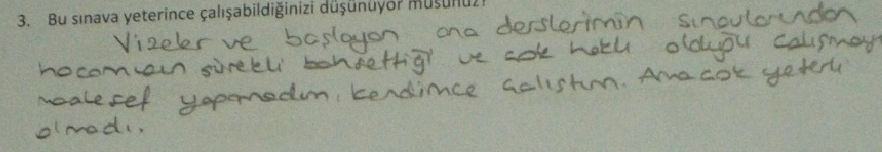 3. Bu sınava yeterince çalışabildiğinizi düşünüyor musunuz?
Vizeler ve başlayan ana derslerimin sınavlarından
hocamızın sürekli bahsettiği ve çok haklı olduğu çalışmayı
maalesef yapamadım. Kendimce çalıştım. Ama çok yeterli
olmadı.